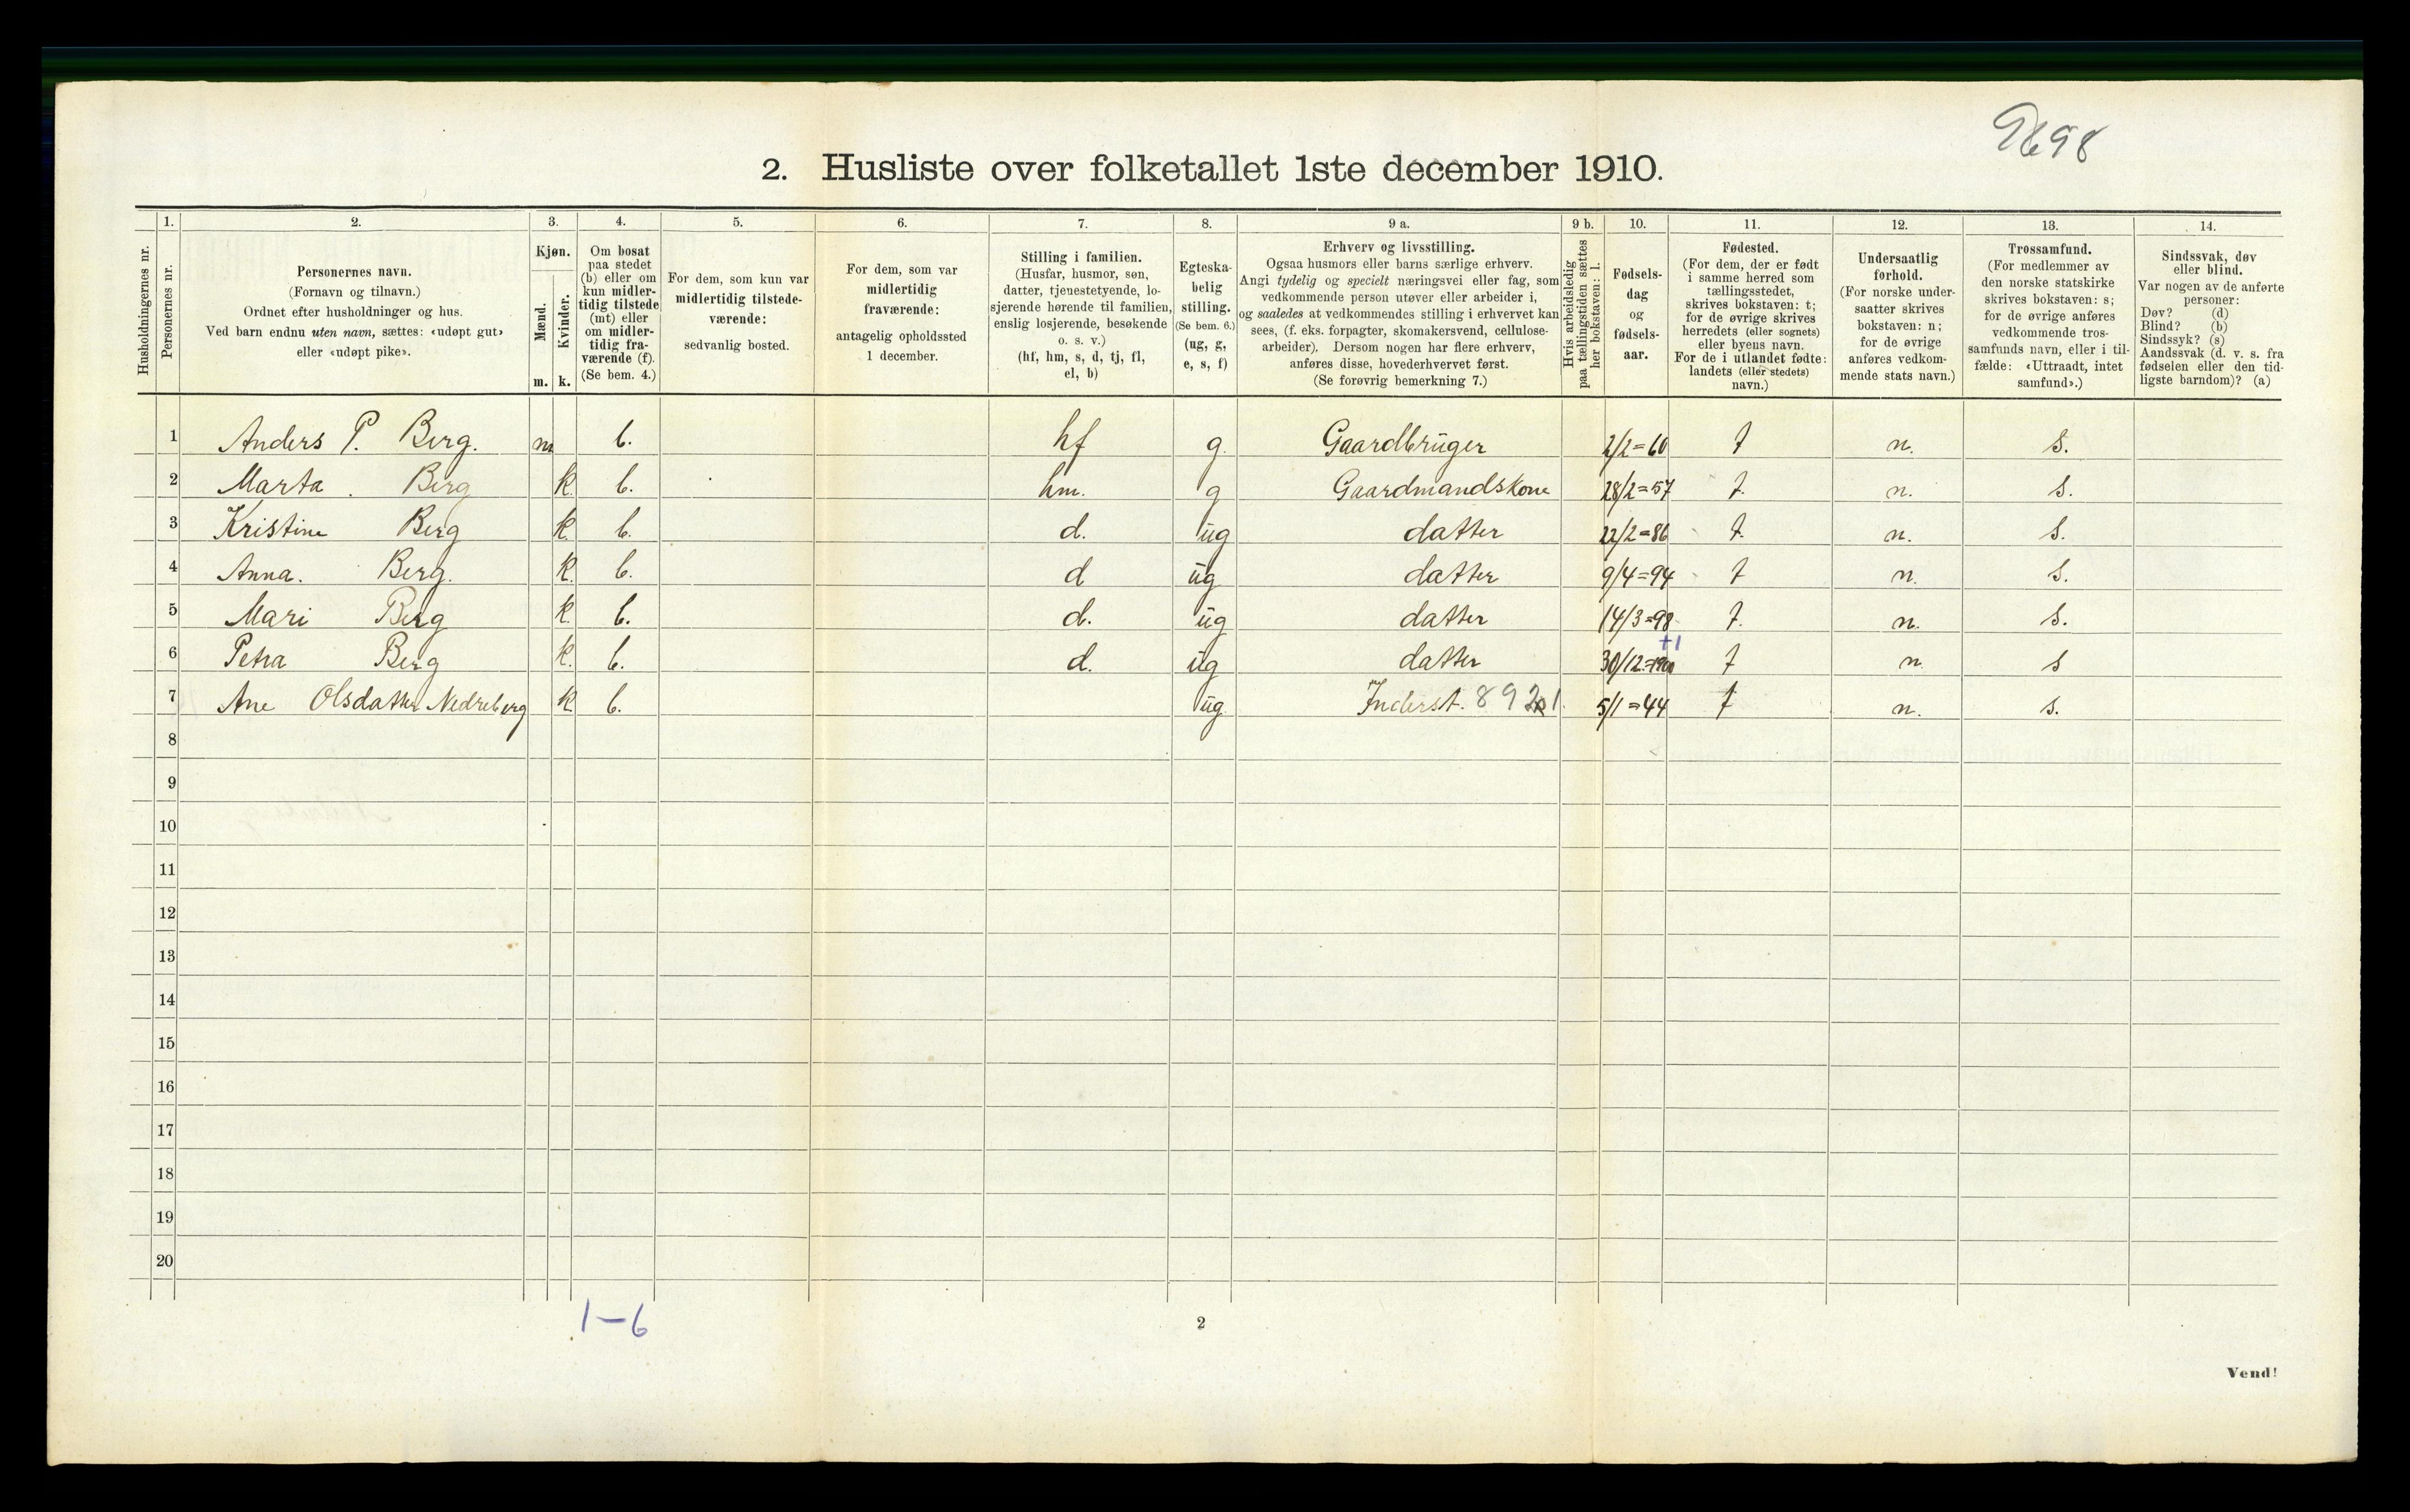 9698
2. Husliste over folketallet 1ste december 1910.
Husholdningernes nr.
1. Personernes nr.
2. Personernes navn.
(Fornavn og tilnavn.)
Ordnet efter husholdninger og hus.
Ved barn endnu uten navn, sættes: «udøpt gut»
eller «udøpt pike».
3. Kjøn.
Mænd. m.
Kvinder. k.
4. Om bosat
paa stedet
(b) eller om
kun midler-
tidig tilstede
(mt) eller
om midler-
tidig fra-
værende (f).
(Se bem. 4.)
5. For dem, som kun var
midlertidig tilstede-
værende:
sedvanlig bosted.
6. For dem, som var
midlertidig
fraværende:
antagelig opholdssted
1 december.
7. Stilling i familien.
(Husfar, husmor, søn,
datter, tjenestetyende, lo-
sjerende hørende til familien,
enslig losjerende, besøkende
o. s. v.)
(hf, hm, s, d, tj, fl,
el, b)
8. Egteska-
belig
stilling.
(Se bem. 6.)
(ug, g,
e, s, f)
9 a. Erhverv og livsstilling.
Ogsaa husmors eller barns særlige erhverv.
Angi tydelig og specielt næringsvei eller fag, som
vedkommende person utøver eller arbeider i,
og saaledes at vedkommendes stilling i erhvervet kan
sees, (f. eks. forpagter, skomakersvend, cellulose-
arbeider). Dersom nogen har flere erhverv,
anføres disse, hovederhvervet først.
(Se forøvrig bemerkning 7.)
9 b. Hvis arbeidsledig
paa tællingstiden sættes
her bokstaven: l.
10. Fødsels-
dag
og
fødsels-
aar.
11. Fødested.
(For dem, der er født
i samme herred som
tællingsstedet,
skrives bokstaven: t;
for de øvrige skrives
herredets (eller sognets)
eller byens navn.
For de i utlandet fødte:
landets (eller stedets)
navn.)
12. Undersaatlig
forhold.
(For norske under-
saatter skrives
bokstaven: n;
for de øvrige
anføres vedkom-
mende stats navn.)
13. Trossamfund.
(For medlemmer av
den norske statskirke
skrives bokstaven: s;
for de øvrige anføres
vedkommende tros-
samfunds navn, eller i til-
fælde: «Uttraadt, intet
samfund».)
14. Sindssvak, døv
eller blind.
Var nogen av de anførte
personer:
Døv? (d)
Blind? (b)
Sindssyk? (s)
Aandssvak (d. v. s. fra
fødselen eller den tid-
ligste barndom)? (a)
1 Anders P. Berg. m b. hf g. Gaardbruger 2/2=60 t n. s.
2 Marta. Berg k. b. hm. g Gaardmandskone 28/2=57 t. n. s.
3 Kristine Berg k. b. d. ug datter 22/2=86 t. n. s.
4 Anna. Berg. k. b. d ug datter 9/4=94 t n. s.
5 Mari Berg k. b. d. ug datter 14/3=98 t. n. s.
+1
6 Petra Berg k. b. d. ug datter 30/12=1900 t n. s
7 Ane Olsdatter Nedreberg k b. ug Inderst. 5/1=44 t n. s.
8
9
10
11
12
13
14
15
16
17
18
19
20
1-6
2
Vend!